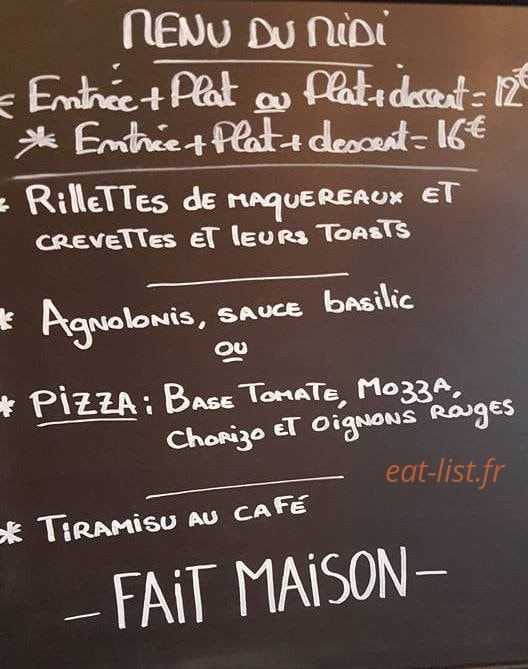 MENU DU MIDI
* Entrée + Plat ou Plat + dessert = 12€
* Entrée + Plat + dessert = 16€
* RILLETTES DE MAQUEREAUX ET
CREVETTES ET LEURS TOASTS
* AGNOLONIS, SAUCE BASILIC
OU
* PIZZA : BASE TOMATE, MOZZA,
CHORIZO ET OIGNONS ROUGES
eat-list.fr
* TIRAMISU AU CAFÉ
– FAIT MAISON –